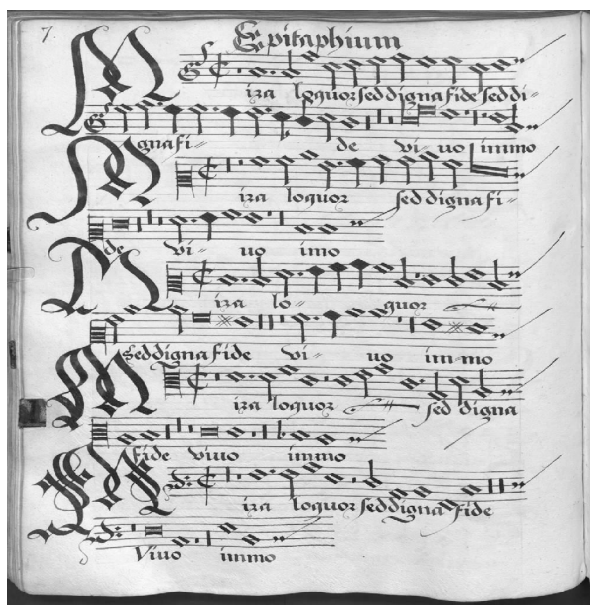 7.
Epitaphium
Mira loquor sed digna fide sed di-
gna fi- de vi- uo immo
Mira loquor sed digna fi-
de vi- uo imo
Mira lo- quor
sed digna fide vi- uo im-mo
Mira loquor sed digna
fide viuo immo
Mira loquor sed digna fide
Viuo immo